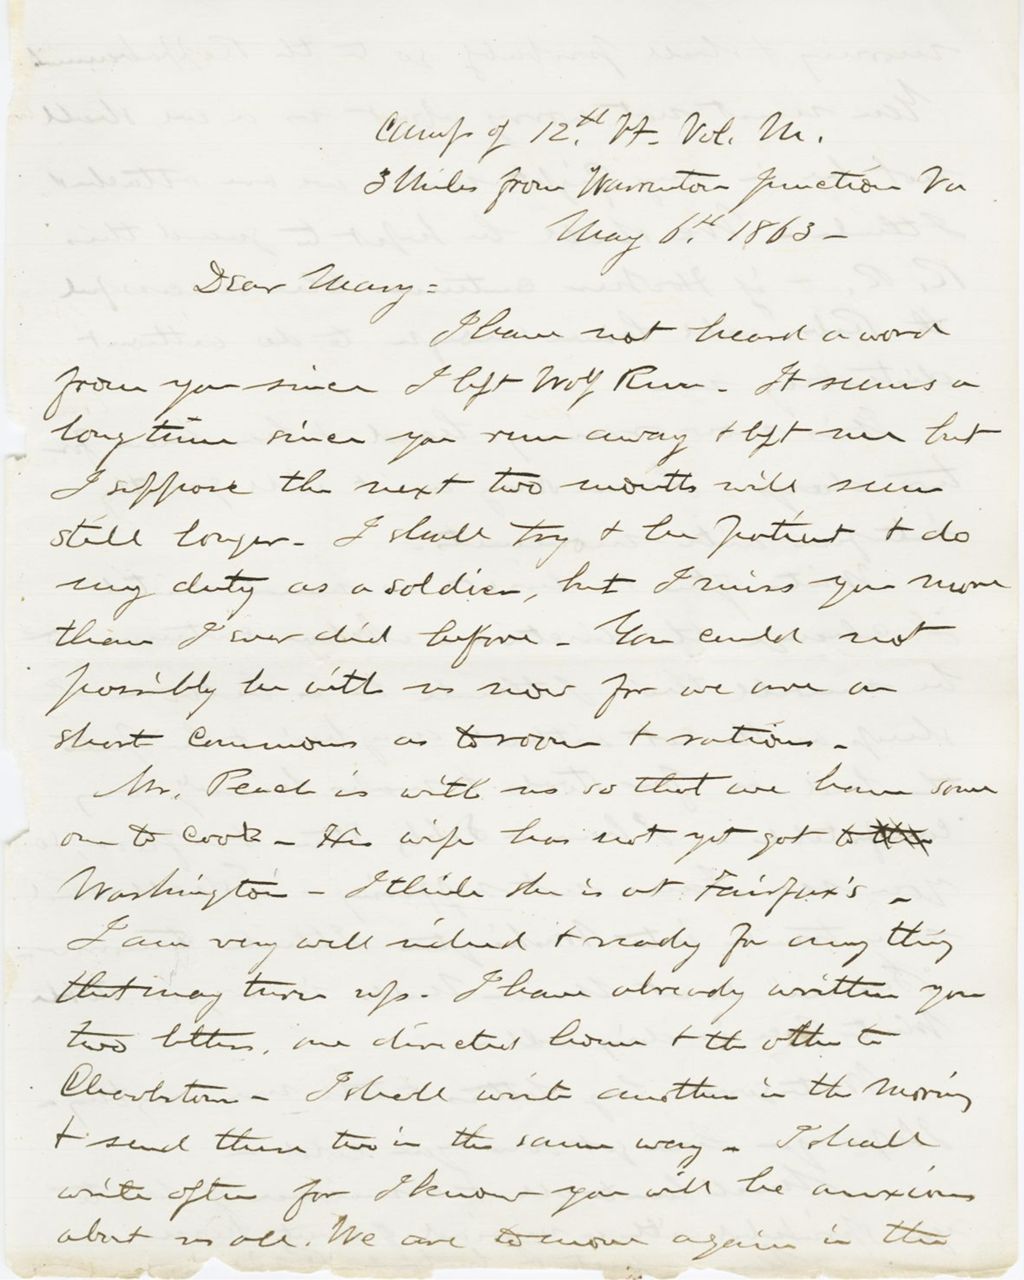 Camp of 12th Vt. Vol. M.
3 Miles from Warrenton Junction Va
May 6th. 1863 -
Dear Mary =
I have not heard a word
from you since I left Wolf Run - It seems a
long time since you run away & left me but
I suppose the next two months will seem
still longer - I shall try & be patient & do
my duty as a soldier, but I miss you more
than I ever did before - You could not
possibly be with us now for we are on
short commons as to room & rations -
Mr. Peach is with us so that we have some
one to cook - His wife has not yet got to
Washington - I think she is at Fairfax's -
I am very well indeed & ready for any thing
that may turn up - I have already written you
two letters, one directed home & the other to
Charlestown - I shall write another in the morning
& send these two in the same way - I shall
write often for I know you will be anxious
about us all. We are to move again in the